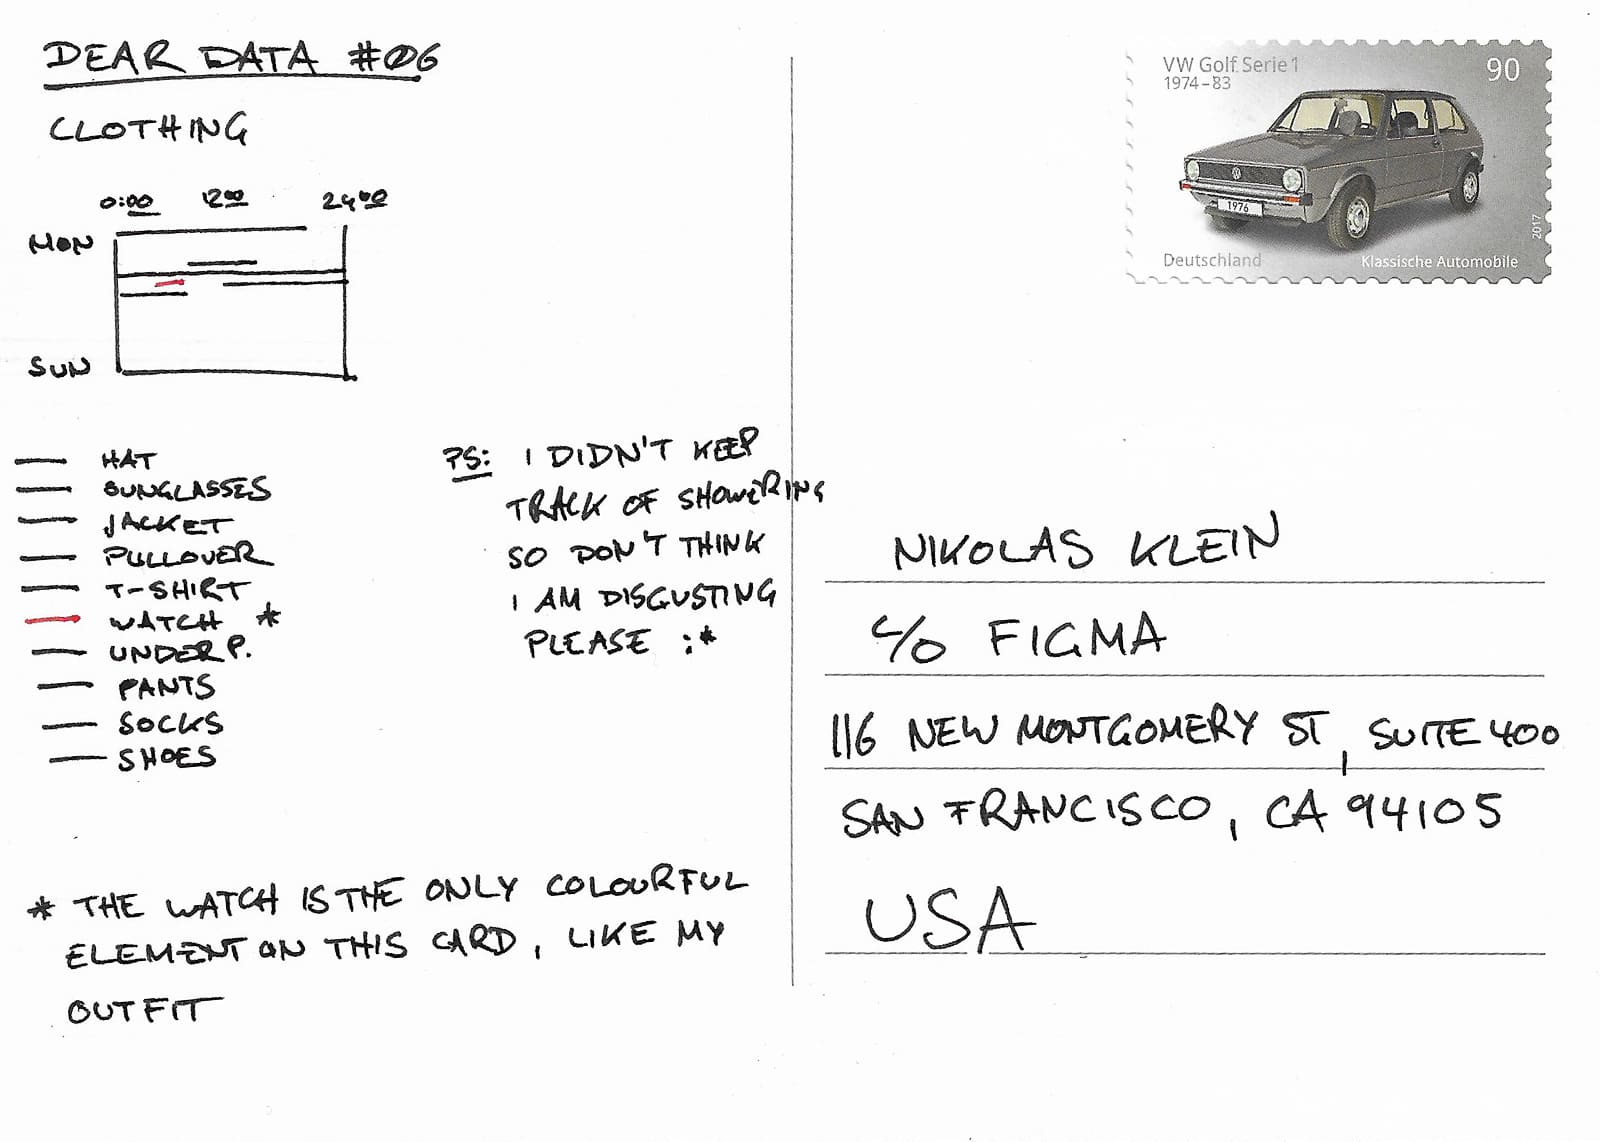 DEAR DATA #06
CLOTHING
0:00 12:00 24:00
MON
SUN
HAT
SUNGLASSES
JACKET
PULLOVER
T-SHIRT
WATCH *
UNDERP.
PANTS
SOCKS
SHOES
PS: I DIDN'T KEEP
TRACK OF SHOWERING
SO DON'T THINK
I AM DISGUSTING
PLEASE :*
* THE WATCH IS THE ONLY COLOURFUL
ELEMENT ON THIS CARD, LIKE MY
OUTFIT
VW Golf Serie 1
1974–83
90
1976
2017
Deutschland
Klassische Automobile
NIKOLAS KLEIN
C/O FIGMA
116 NEW MONTGOMERY ST, SUITE 400
SAN FRANCISCO, CA 94105
USA